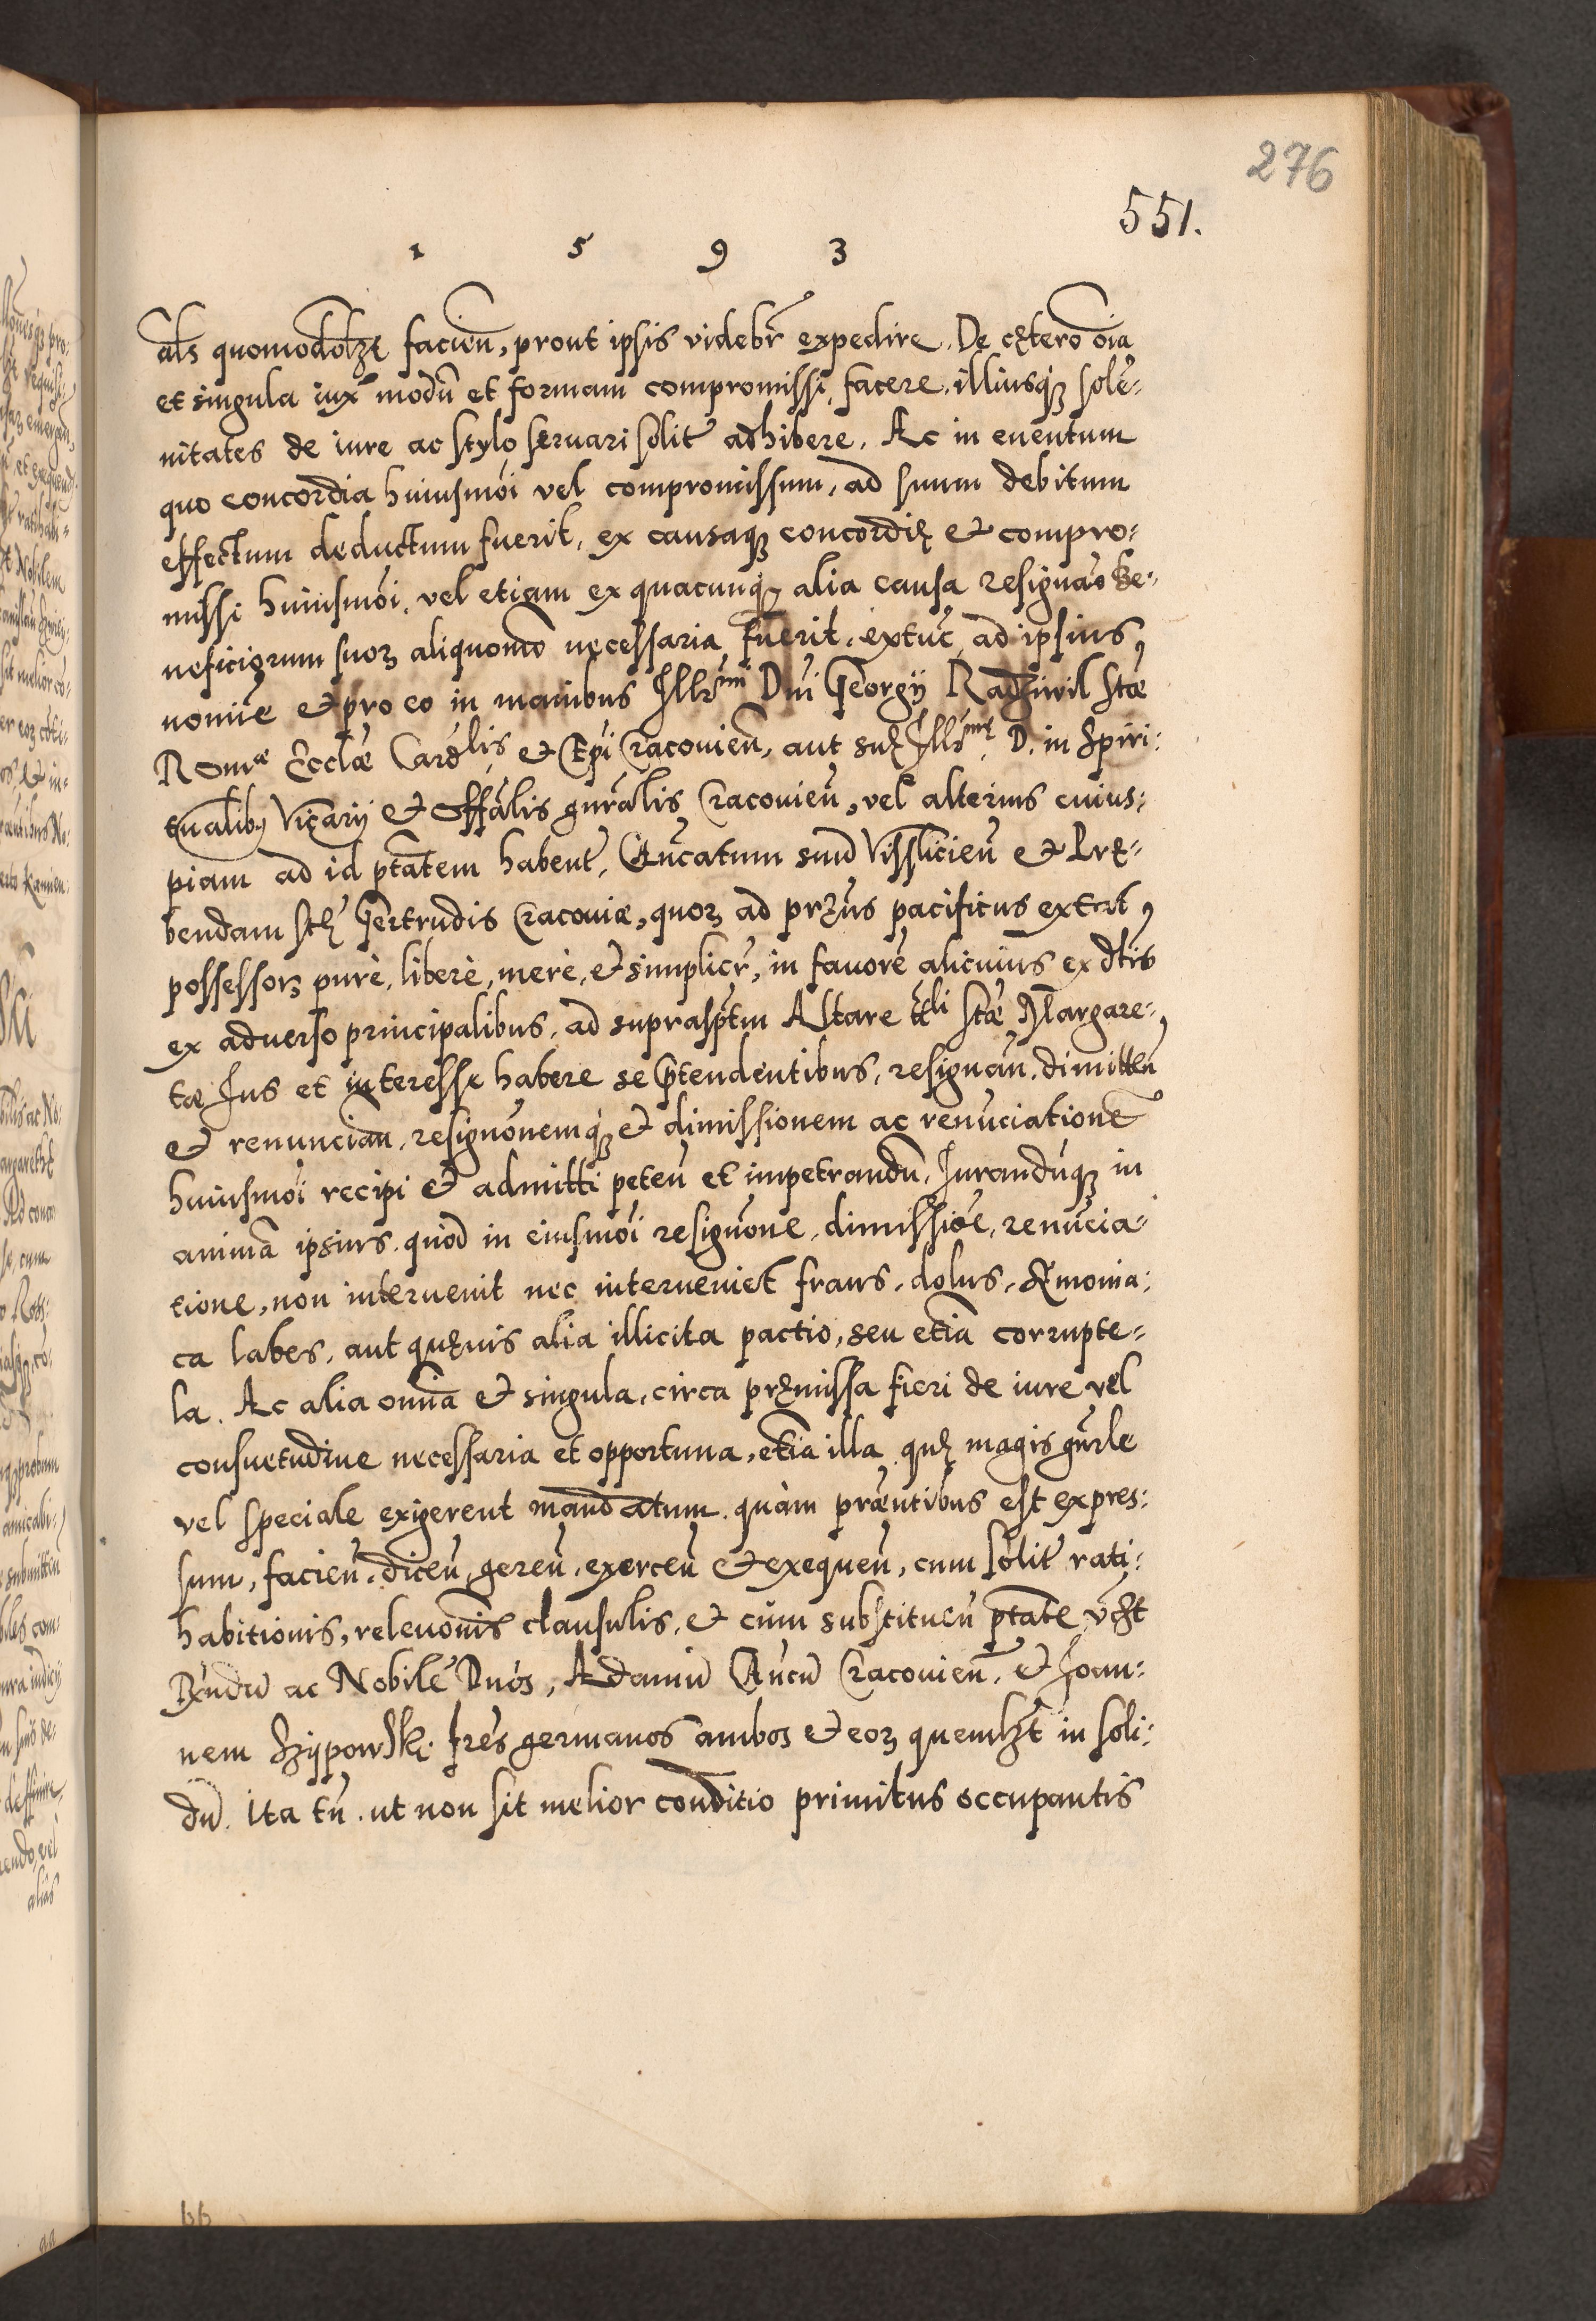 276
551.
1 5 9 3
als quomodolzt facien̄, prout ipsis videbr̄ expedire. De cętero oīa
et singula iuxᵃ modū et formam compromissi facere, illiusq̨ȝ solē-
nitates de iure ac stylo seruari solit̃ adhibere. Ac in euentum
quo concordia huiusmōi vel compromissum, ad suum debitum
effectum deductum fuerit, ex causaqȝ concordię et compro-
missi huiusmōi, vel etiam ex quacunqȝ alia causa resignāo be-
neficiorum suoꝝ aliquomō necessaria fuerit, extūc ad ipsius
nomīe et pro eo in manibus Illr̄ᵐⁱ Dn̄i Georgij Radziwil Stæ
Romᵃᵉ Ecclæ Cardlis et Ep̄i Cracouien̄, aut suę Illr̄ᵐę D. in Spiri-
tualibȝ Vicarij et Offālis gn̄ralis Cracouien̄, vel alterius cuius-
piam ad id ptātem haben̄t, Cān̄catum suū Vissliciēn et Prę-
bendam Stę Gertrudis Cracouiæ, quoꝝ ad prȝns pacificus extat
possessoꝝ purè, liberè, merè, et simplicr̄, in fauorē alicuius ex dt̄is
ex aduerso principalibus, ad suprasptm̄ Altare ttˡⁱ Stæ Margare-
tæ Ius et interesse habere se prætendentibus, resignan̄, dimitten̄
et renuncian̄, resignōnemq̨ȝ et dimissionem ac renūciationē
huiusmōi recipi et admitti peten̄ et impetrandū, Iurandūqȝ in
animā ipsius, quòd in eiusmōi resignōne, dimissiōe, renūcia-
tione, non interuenit nec interueniet fraus, dolus, symonia-
ca labes, aut quęuis alia illicita pactio, seu etiā corrupte-
la. Ac alia omnia et singula, circa pręmissa fieri de iure vel
consuetudine necessaria et opportuna, etiā illa quę magis gn̄rle
vel speciale exigerent mandatum quàm præn̄tibus est expres-
sum, facien̄, dicen̄, geren̄, exercen̄ et exequen̄, cum solit̃ rati-
habitionis, releuōnis clausulis, et cùm substituen̄ ptāte, vzlt
Rn̄dū ac Nobilē Dn̄os, Adamū Cān̄cū Cracouien̄, et Ioan-
nem Szypowski fr̄es germanos ambos et eoꝝ quemlȝt in soli-
dū. Ita tn̄, ut non sit melior conditio primitus occupantis
bb